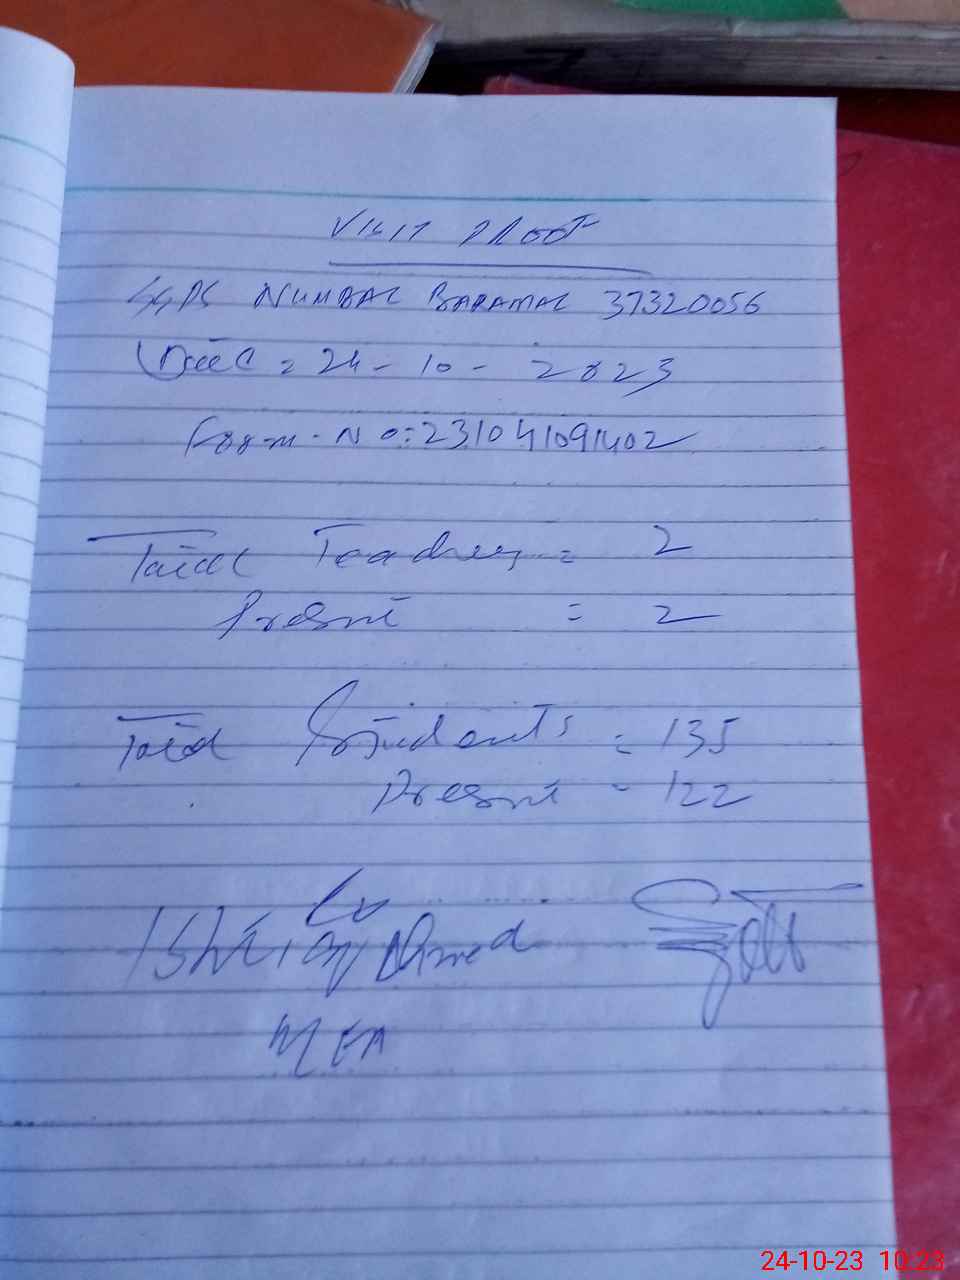 VISIT PROOF
GGPS NUMBAL BARAMAL 37320056
Date = 24-10-2023
Form. No: 231041091402
Total Teachers = 2
Present = 2
Total Students = 135
Present = 122
Ishtiaq Ahmed
MEA
24-10-23 10:23